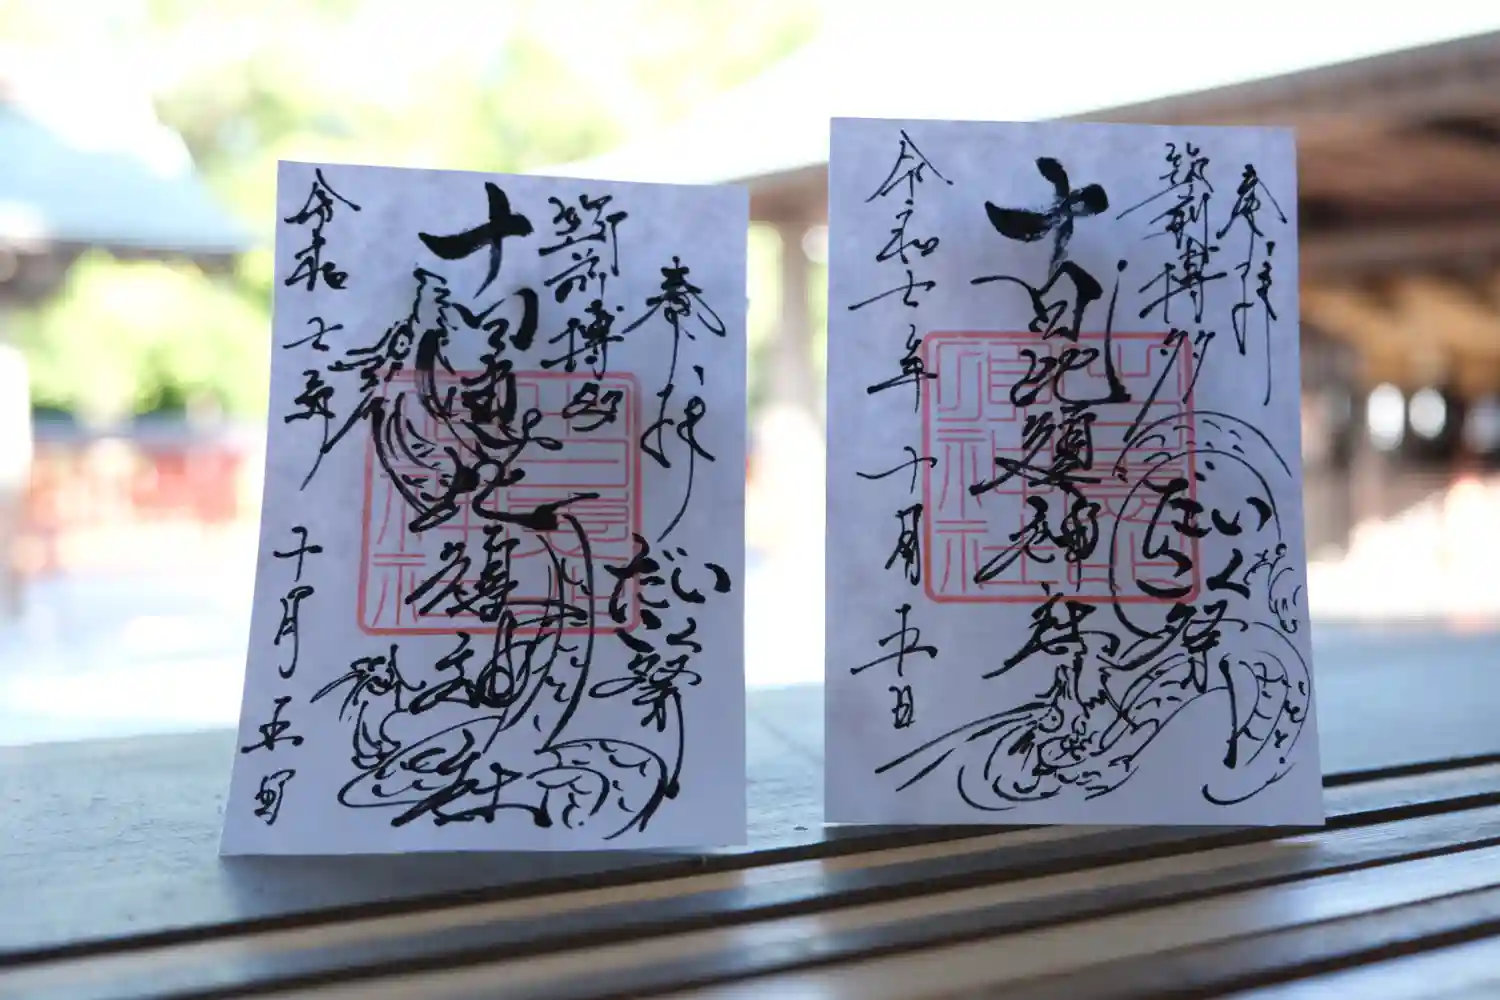 奉拝
筑前博多
だいこく祭
十日恵比須神社
令和七年
十月五日
奉拝
筑前博多
だいこく祭
十日恵比須神社
令和七年十月五日